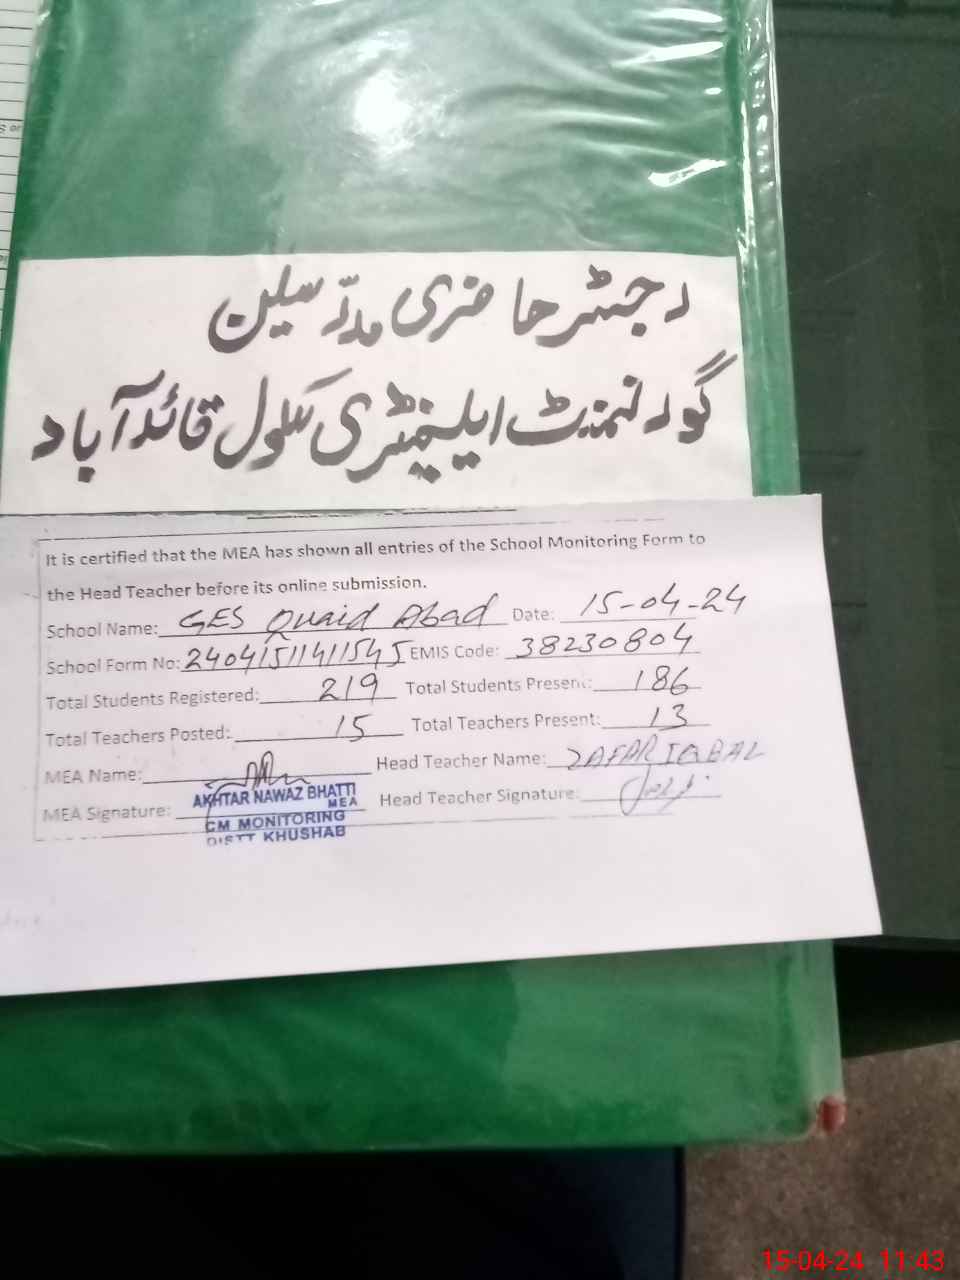 رجسٹر حاضری مدرسین
گورنمنٹ ایلیمنٹری سکول قائدآباد
It is certified that the MEA has shown all entries of the School Monitoring Form to
the Head Teacher before its online submission.
School Name: GES Quaid Abad Date: 15-04-24
School Form No: 24041511411545 EMIS Code: 38230804
Total Students Registered: 219 Total Students Present: 186
Total Teachers Posted: 15 Total Teachers Present: 13
MEA Name: Head Teacher Name: ZAFAR IQBAL
MEA Signature: AKHTAR NAWAZ BHATTI Head Teacher Signature:
MEA
CM MONITORING
DISTT KHUSHAB
15-04-24 11:43